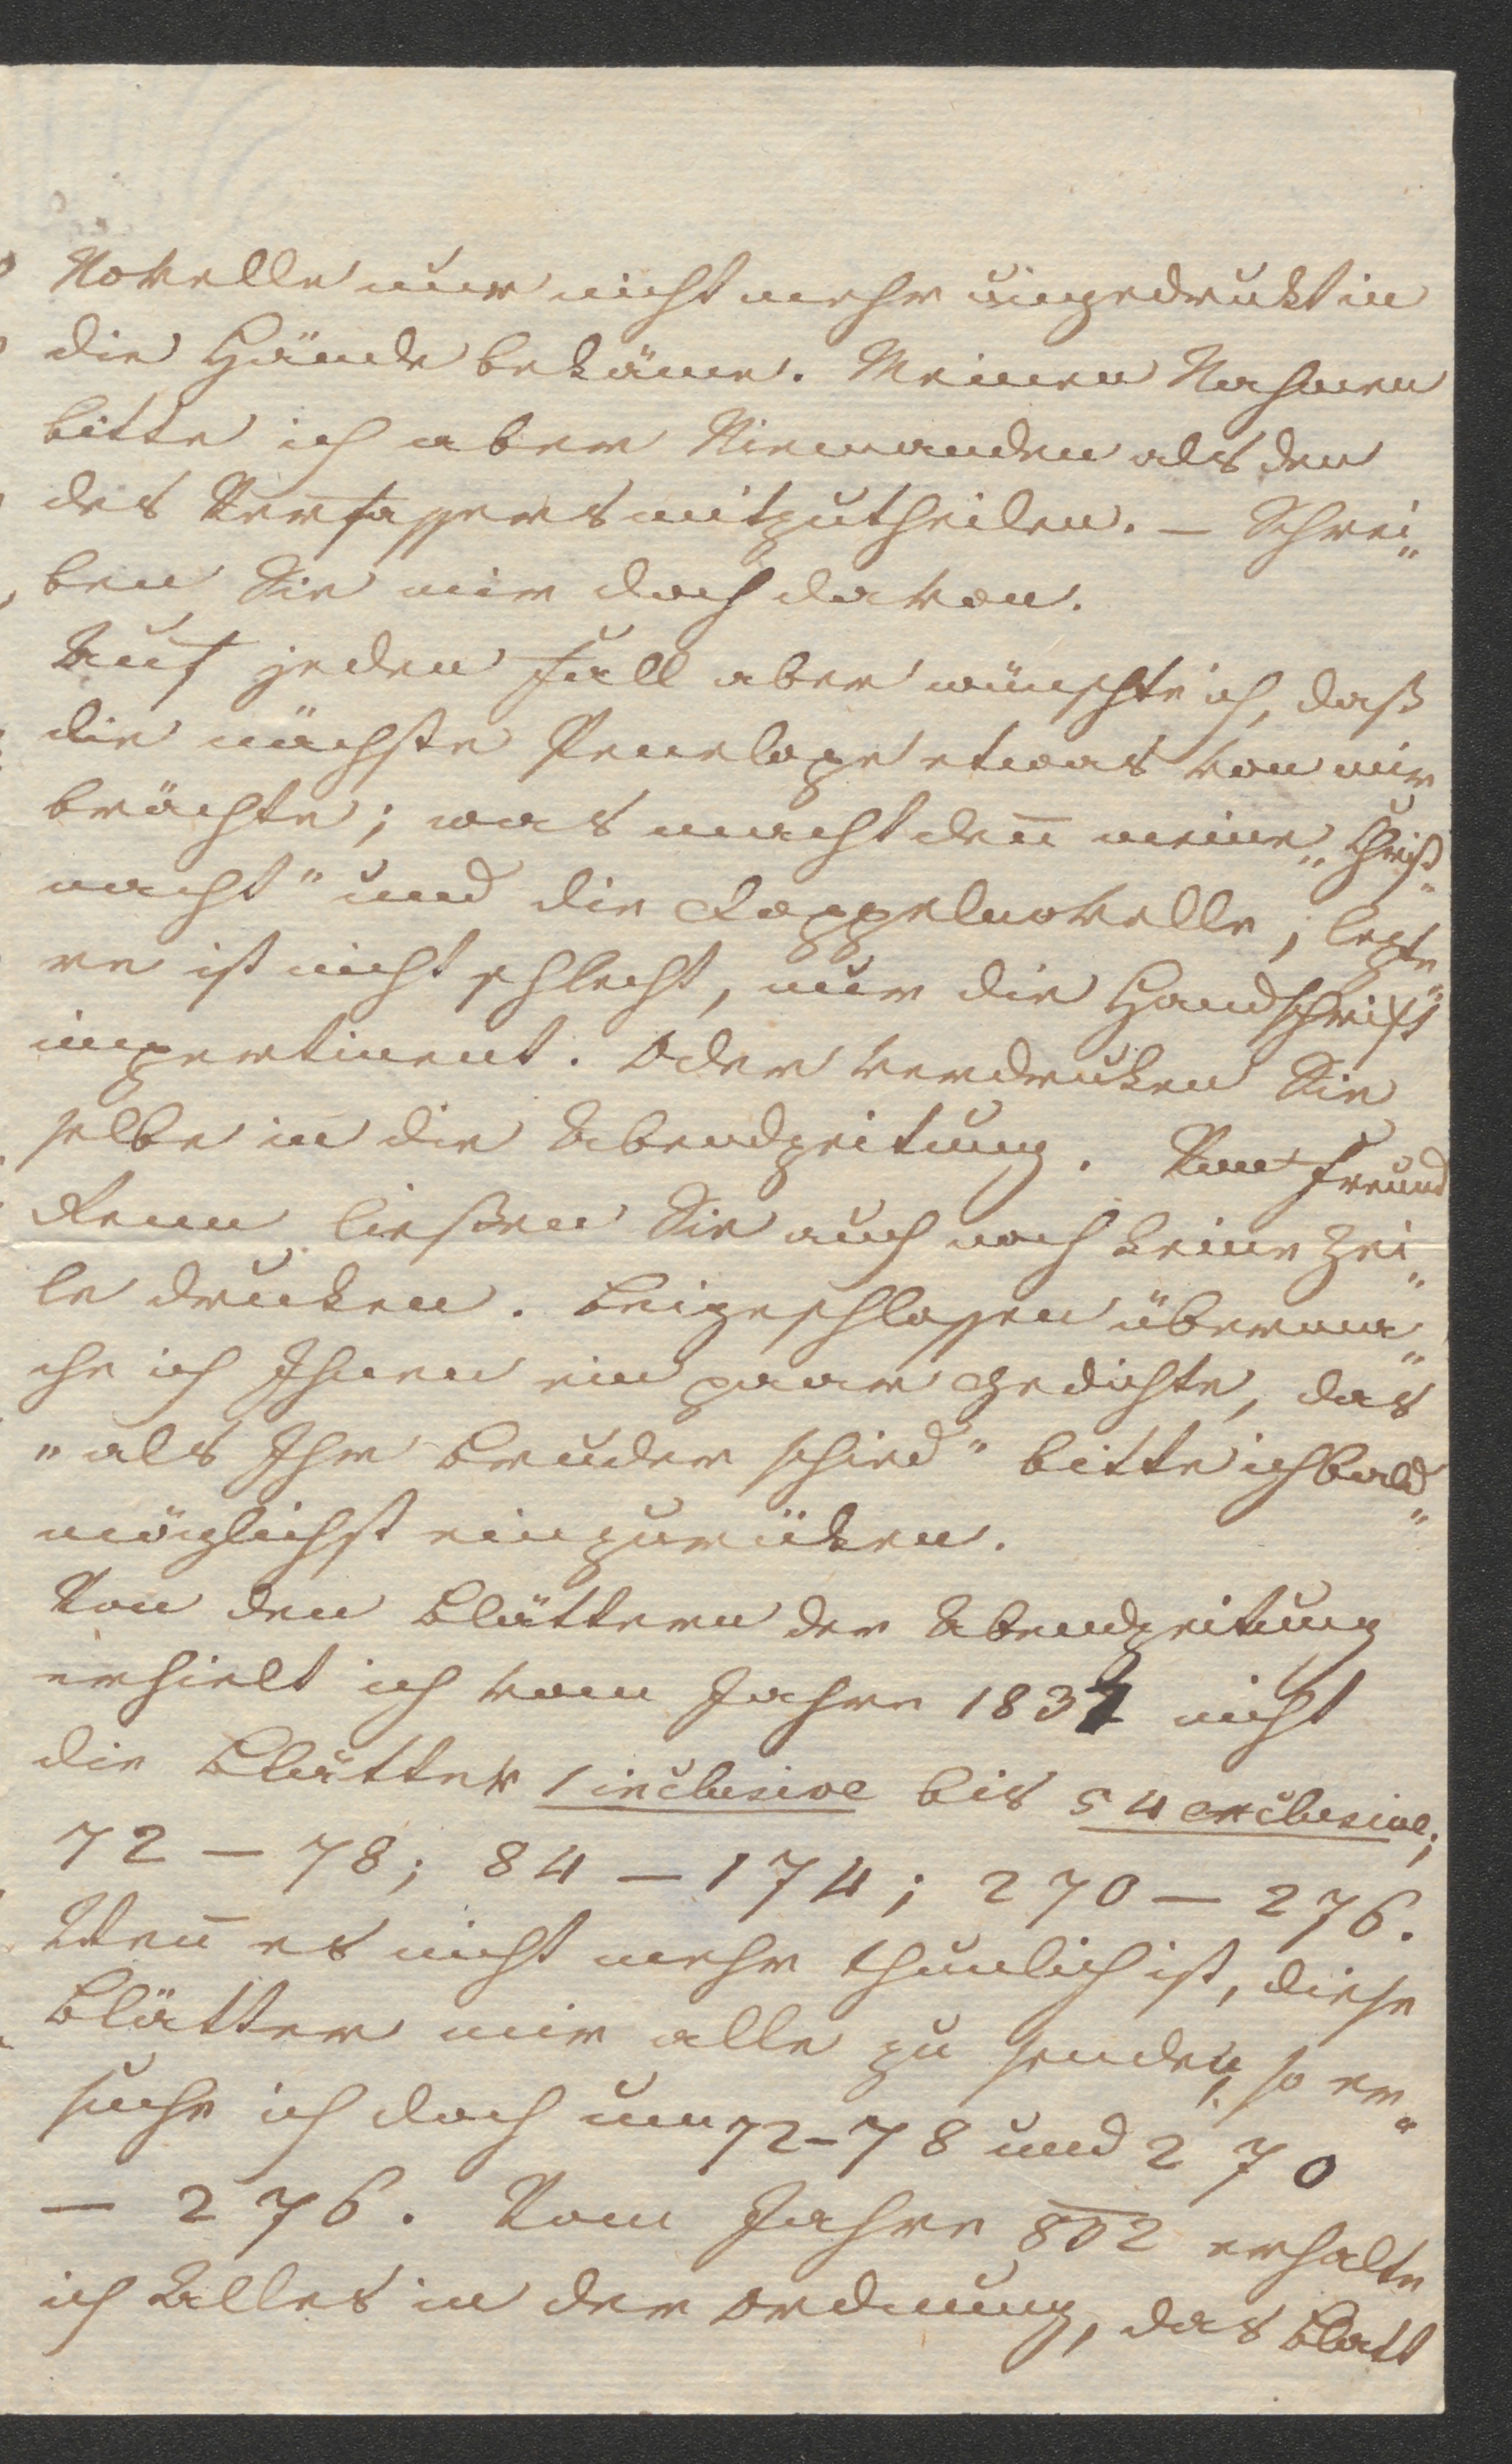 Novelle nur nicht mehr ungedruckt in
die Hände bekäme. Meinen Nahmen
bitte ich aber Niemanden als den
des Verfassers mitzutheilen. – Schrei„
ben Sie mir doch davon.
Auf jeden Fall aber wünschte ich, daß
die nächste Penelope etwas von mir
brächte; was macht den̄ meine „Christ„
nacht" und die Doppelnovelle; lezte„
re ist nicht schlecht, nur die Handschrift
impertinent. Oder verdrucken Sie
selbe in die Abendzeitung. Von Freund
Renn ließen Sie auch noch keine Zei„
le drucken. Beigeschlossen überma„
che ich Ihnen ein paar Gedichte, das
„als Ihr Bruder schied" bitte ich bald„
möglichst einzurücken.
Von den Blättern der Abendzeitung
erhielt ich vom Jahre 1831 nicht
die Blätter 1 inclusive bis 54 exclusive;
72 – 78; 84 – 174; 270 – 276.
Wen̄ es nicht mehr thunlich ist, diese
Blätter mir alle zu senden, so er„
suche ich doch um 72–78 und 270
– 276. Vom Jahre 832 erhalte
ich Alles in der Ordnung, das Blatt